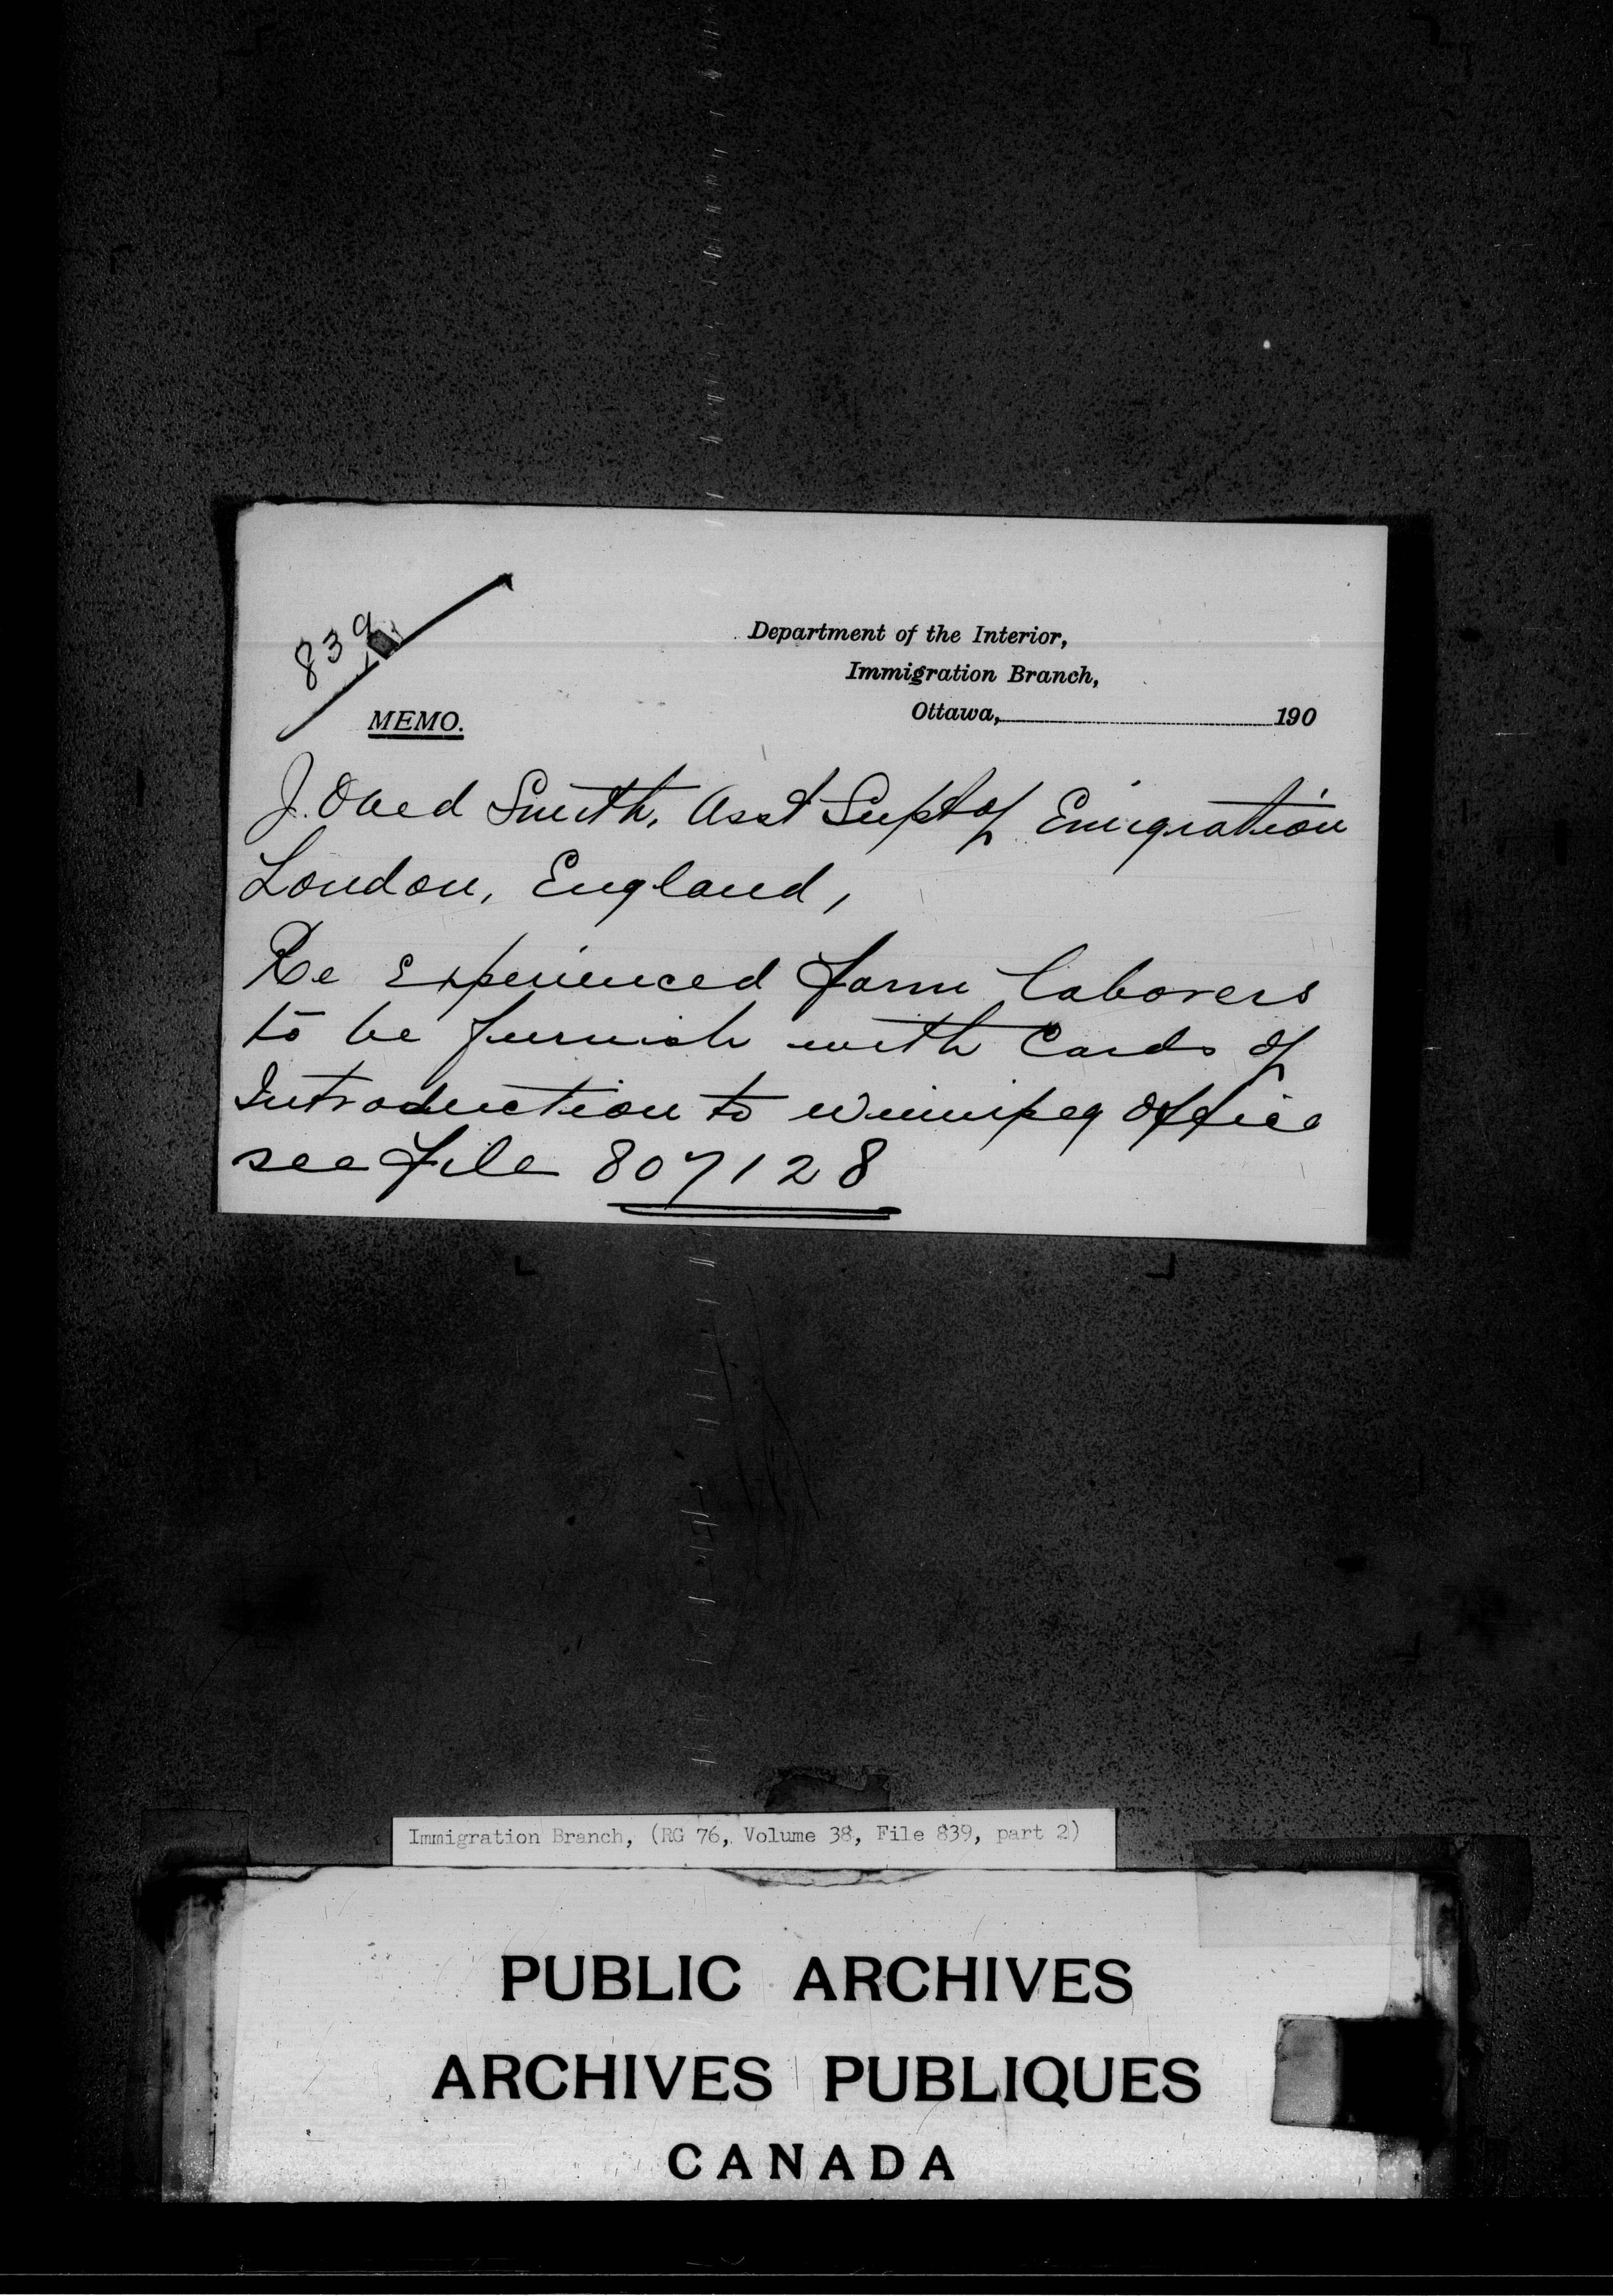 839
Department of the Interior,
Immigration Branch,
Ottawa, 190
MEMO.
J. Obed Smith, Asst Supt of Emigration
London, England,
Re Experienced farm laborers
to be furnish with Cards of
Introduction to Winnipeg Office
see file 807128
Immigration Branch, (RG 76, Volume 38, File 839, part 2)
PUBLIC ARCHIVES
ARCHIVES PUBLIQUES
CANADA